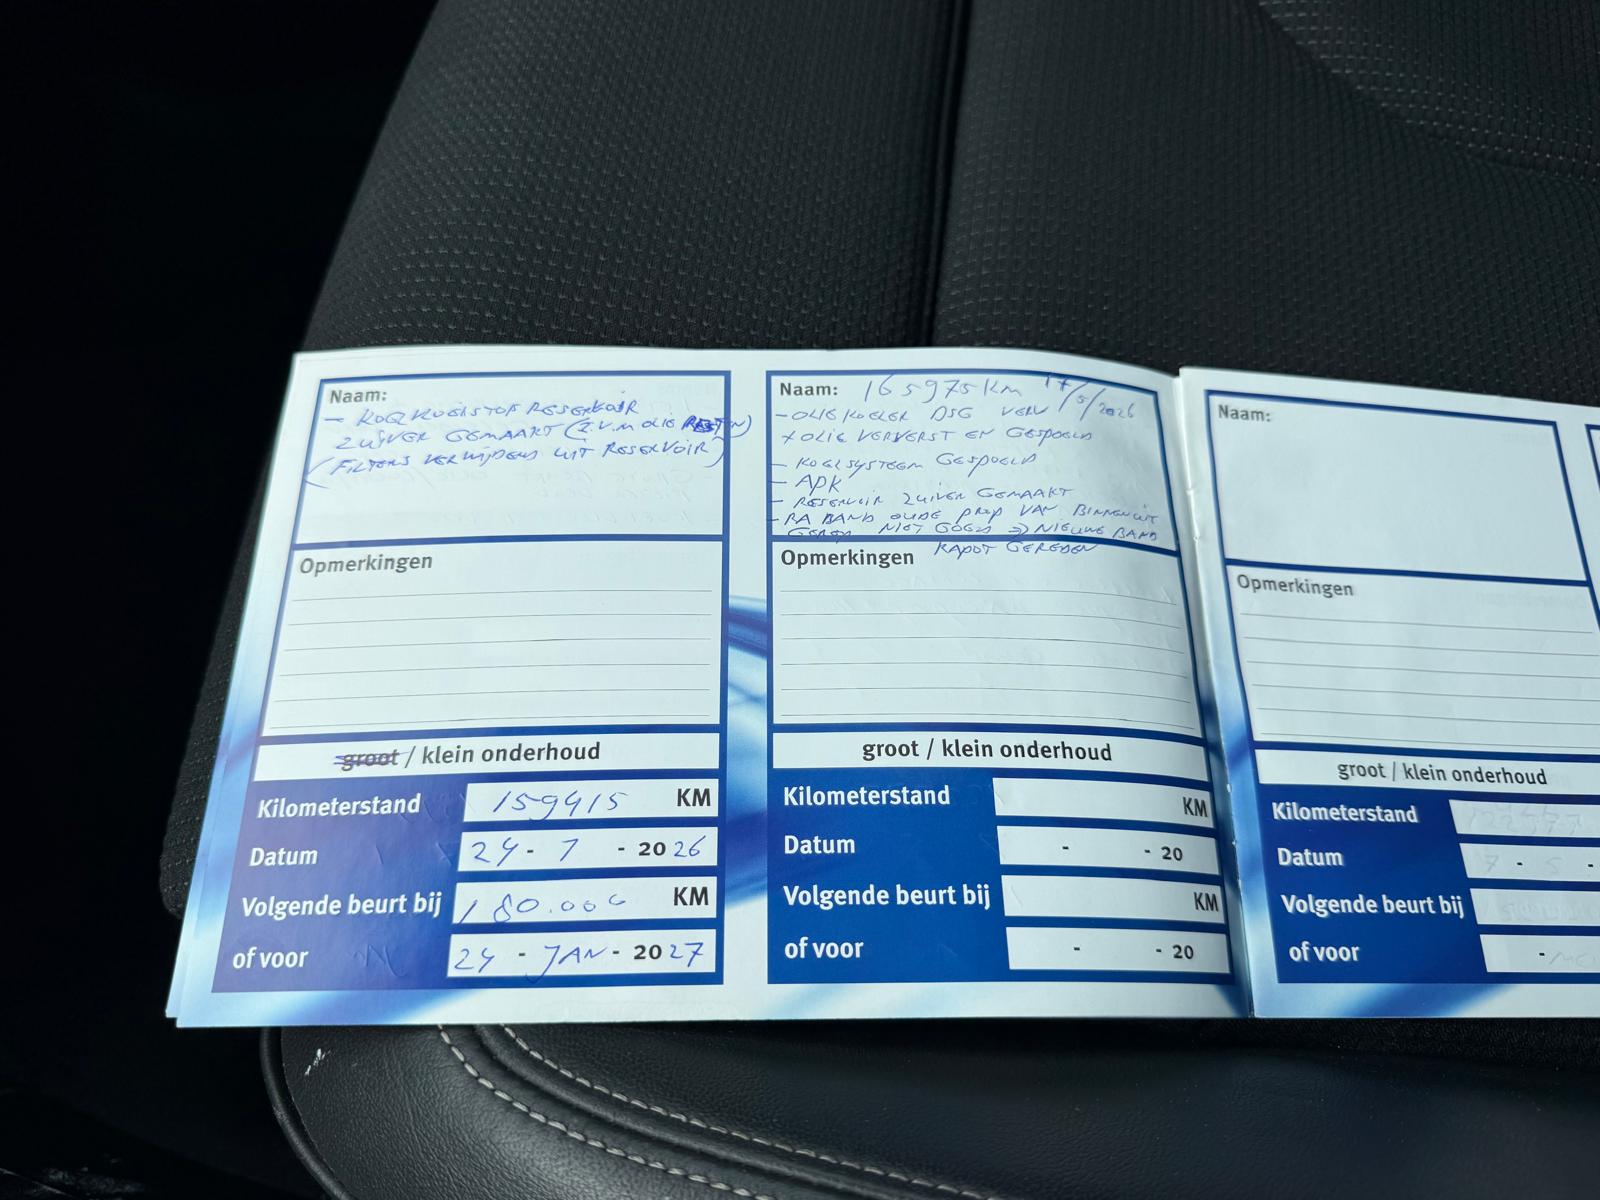 Naam:
- KOELVLOEISTOF RESERVOIR
ZUIVER GEMAAKT (I.V.M OLIE RESTEN)
(FILTERS VERWIJDERD UIT RESERVOIR)
Opmerkingen
groot / klein onderhoud
Kilometerstand 159415 KM
Datum 24 - 1 - 20 26
Volgende beurt bij 180.000 KM
of voor 24 - JAN - 20 27
Naam: 165975 KM 17/5/2026
- OLIE KOELER DSG VERV
+ OLIE VERVERST EN GESPOELD
- KOELSYSTEEM GESPOELD
- APK
- RESERVOIR ZUIVER GEMAAKT
- RA BAND OUDE PROP VAN BINNENUIT
NIET GOED => NIEUWE BAND
KAPOT GEREDEN
Opmerkingen
groot / klein onderhoud
Kilometerstand KM
Datum - - 20
Volgende beurt bij KM
of voor - - 20
Naam:
Opmerkingen
groot / klein onderhoud
Kilometerstand
Datum - -
Volgende beurt bij
of voor -